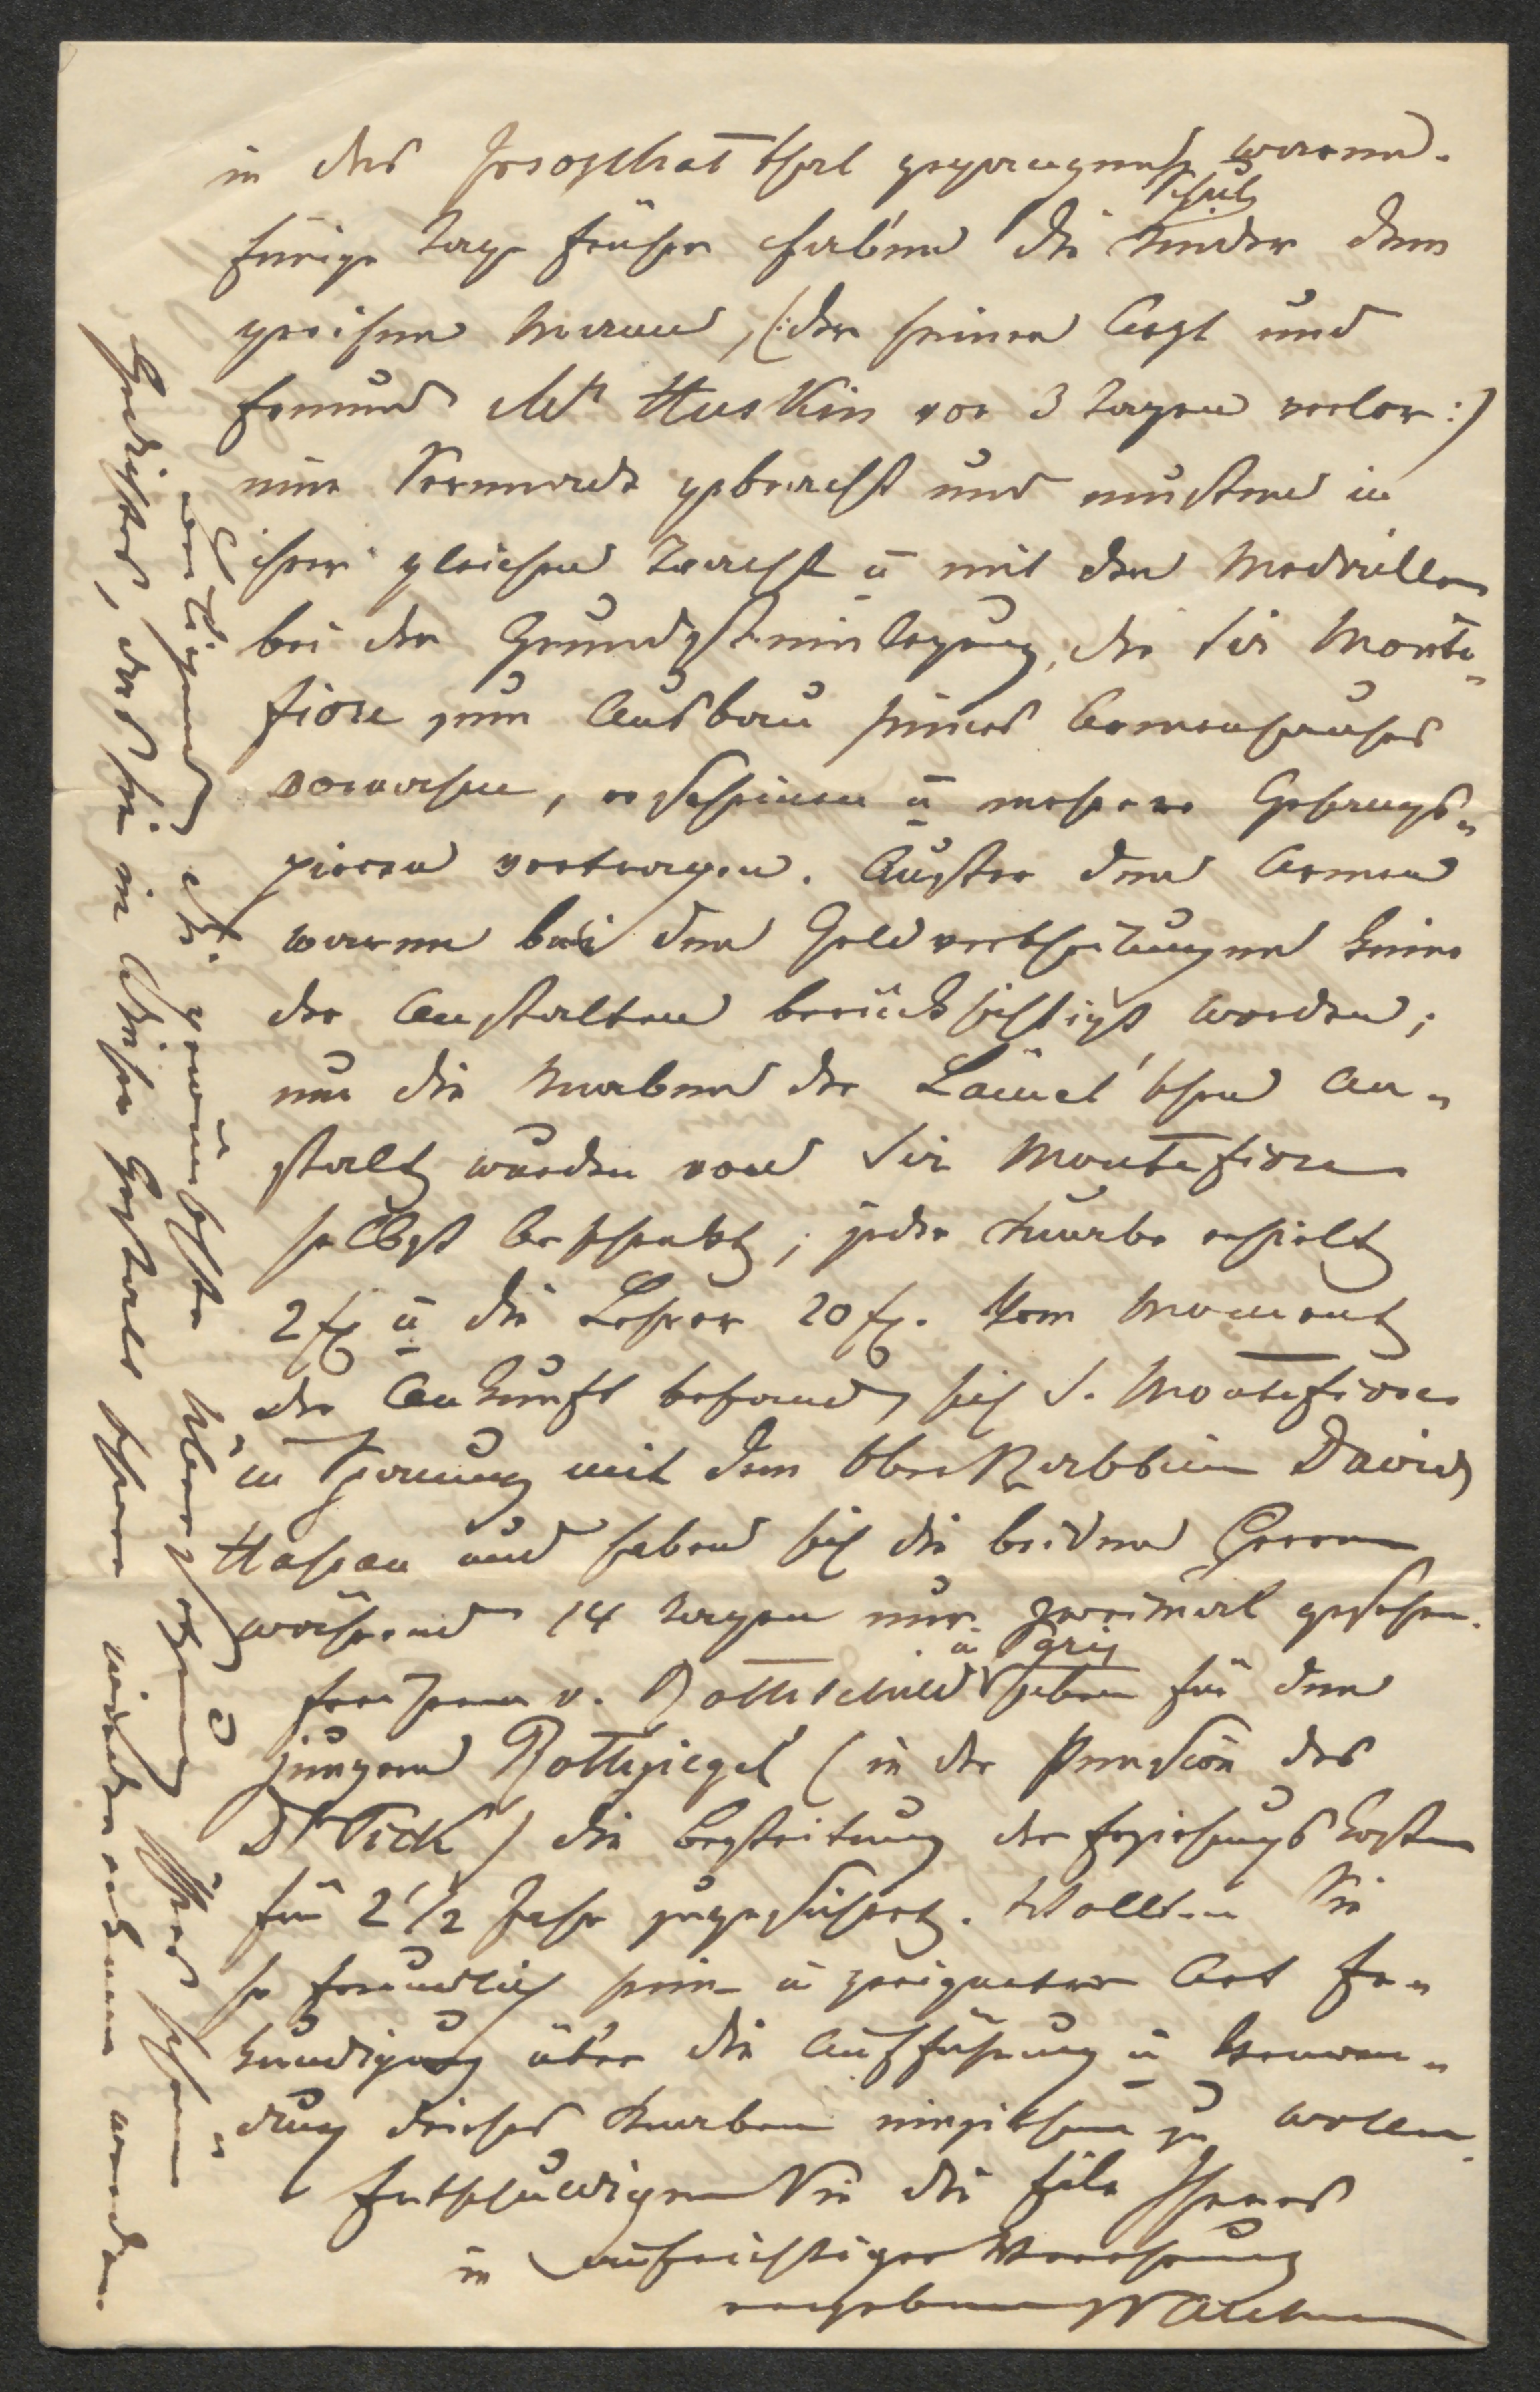 in das Josophat thal gegangen waren.
Einige Tage früher haben die Schul
Kinder dem
greisen Manne, (:der seinen Arzt und
Freund Mr Huskin vor 3 Tagen verlor:)
eine Serenade gebracht und mußten in
ihrer gleichen Tracht u mit den Medaillen
bei der Grundsteinlegung, die Sir Monte„
fiore zum Ausbau seines Armenhauses
vornahm, erscheinen u mehrere Gesangs„
piecen vortragen. Außer den Armen
waren bei den Geldvertheilungen keine
der Anstalten berücksichtigt worden;
nur die Knaben der Lämel'schen An„
stalt wurden von Sir Montefiore
selbst beschenkt; jeder Knabe erhielt
2 f u die Lehrer 20 f. Vom Moment
der Ankunft befand sich S. Montefiore
in Spannung mit dem OberRabbiner David
Hasan und haben sich die beiden Herren
während 14 Tagen nur zweimal gesehen.
Freiherrn v. Rothschild u Paris haben für den
jungen Rothziegel (in der Pension des
Dr Pick) die Bestreitung der Erziehungskosten
für 2 1/2 Jahr zugesichert. Wollten Sie
so freundlich sein in geeigneter Art Er„
kundigung über die Aufführung u Verwen„
dung dieses Knaben einziehen zu wollen.
Entschuldigen Sie die Eile Ihres
in aufrichtiger Verehrung
ergebenen
verständigend die gewünschte Überzeugung Ihres
Gedichtes, daß sie in dieser Gestalt schon